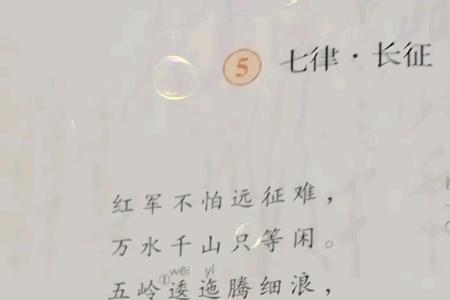 5 七律·长征
红军不怕远征难，
万水千山只等闲。
wēi yí
五岭①逶迤腾细浪，